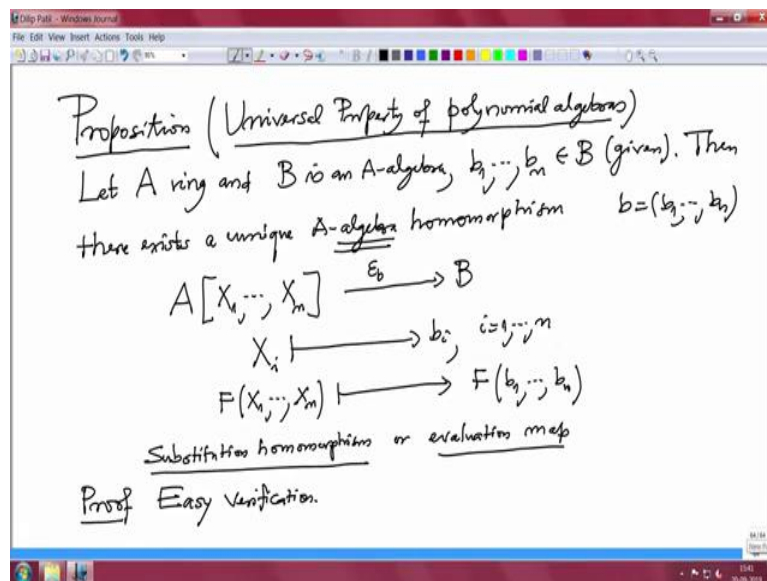 Dilip Patil - Windows Journal
File Edit View Insert Actions Tools Help
Proposition (Universal Property of polynomial algebras)
Let A ring and B is an A-algebra, b₁,...,bₙ ∈ B (given). Then
there exists a unique A-algebra homomorphism b=(b₁,...,bₙ)
A[X₁,...,Xₙ] —ε_b→ B
Xᵢ ↦ bᵢ, i=1,...,n
F(X₁,...,Xₙ) ↦ F(b₁,...,bₙ)
Substitution homomorphism or evaluation map
Proof Easy verification.
64/64
15:41